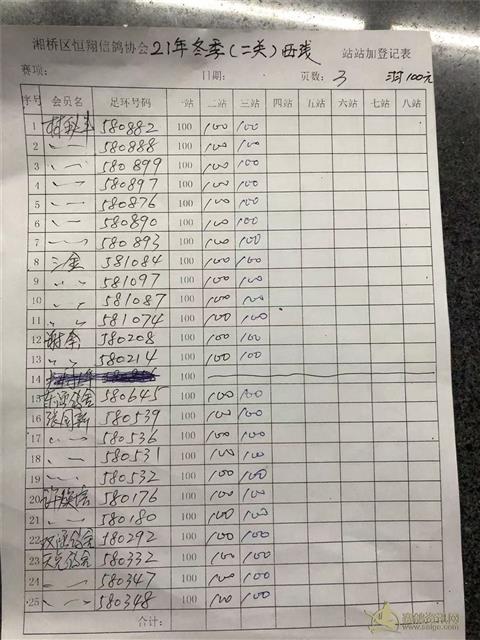 湘桥区恒翔信鸽协会21年冬季(二关)西线 站站加登记表
赛项: 日期: 页数: 3 满100元
序号 会员名 足环号码 一站 二站 三站 四站 五站 六站 七站 八站
1 580882 100 100 100
2 〃 580888 100 100 100
3 〃 580899 100 100 100
4 〃 580897 100 100 100
5 〃 580876 100 100 100
6 〃 580890 100 100 100
7 〃 580893 100 100 100
8 三金 581084 100 100 100
9 〃 581097 100 100 100
10 〃 581087 100 100 100
11 〃 581074 100 100 100
12 谢李 580208 100 100 100
13 〃 580214 100 100 100
14 100
15 580645 100 100 100
16 张国新 580539 100 100 100
17 〃 580536 100 100 100
18 〃 580531 100 100 100
19 〃 580532 100 100 100
20 580176 100 100 100
21 〃 580180 100 100 100
22 580292 100 100 100
23 580332 100 100 100
24 〃 580347 100 100 100
25 〃 580348 100 100 100
合计:
www.saige.com